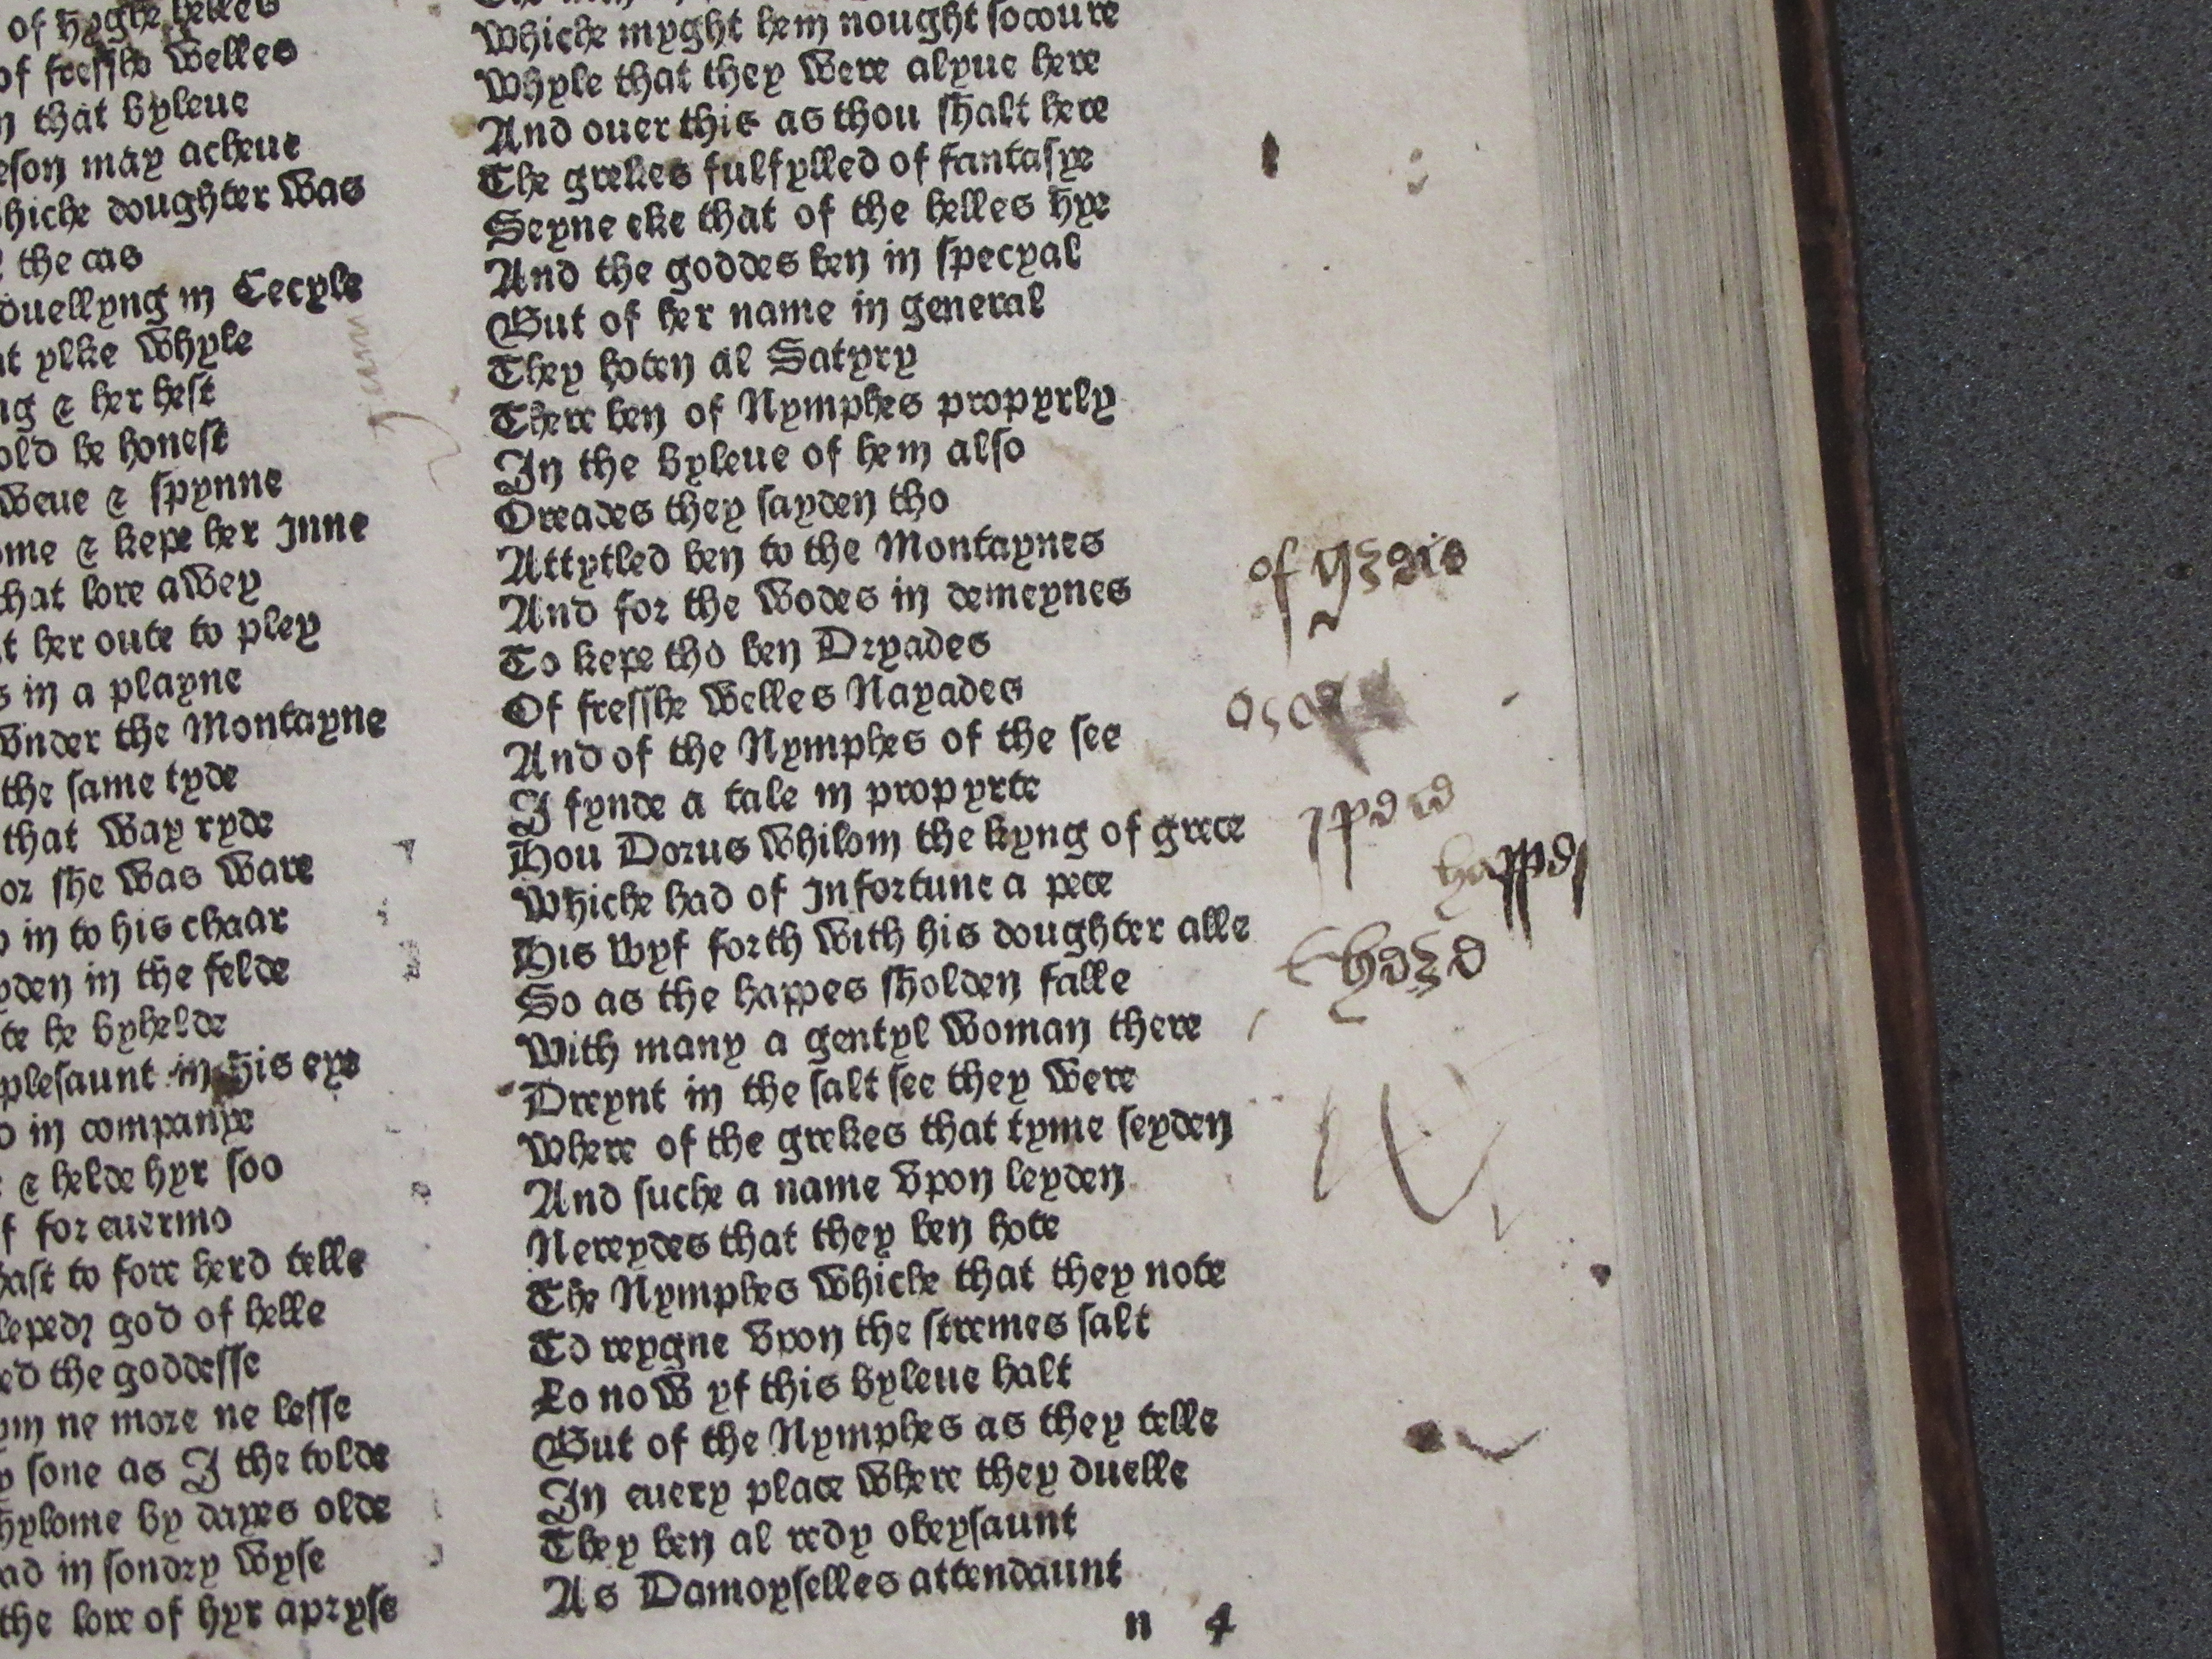 of hyghe helles
of fresshe welles
n that byleue
eson may acheue
hiche doughter was
the cas
duellyng in Cecyle
at ylke whyle
ng & her hest
old be honest
weue & spynne
ome & kepe her Inne
that lore awey
t her oute to pley
s in a playne
vnder the Montayne
the same tyde
that way ryde
or she was ware
in to his chaar
yden in the felde
te he byhelde
plesaunt in his eye
in companye
& helde hyr soo
f for euermo
hast to fore herd telle
leped god of helle
ed the goddesse
ym ne more ne lesse
sone as I the tolde
hylome by dayes olde
ad in sondry wyse
the lore of hyr apryse
Whiche myght hem nought socoure
Whyle that they were alyue here
And ouer this as thou shalt here
The grekes fulfylled of fantasye
Seyne eke that of the helles hye
And the goddes ben in specyal
But of her name in general
They hoten al Satyry
There ben of Nymphes propyrly
In the byleue of hem also
Oreades they sayden tho
Attytled ben to the Montaynes
And for the wodes in demeynes
To kepe tho ben Dryades
Of fresshe welles Nayades
And of the Nymphes of the see
I fynde a tale in propyrte
Hou Dorus whilom the kyng of grece
Whiche had of Infortune a pece
His wyf forth with his doughter alle
So as the happes sholden falle
With many a gentyl woman there
Dreynt in the salt see they were
Where of the grekes that tyme seyden
And suche a name vpon leyden
Nereydes that they ben hote
The Nymphes whiche that they note
To reygne vpon the stremes salt
Lo now yf this byleue halt
But of the Nymphes as they telle
In euery place where they duelle
They ben al redy obeysaunt
As Damoyselles attendaunt
n 4
of